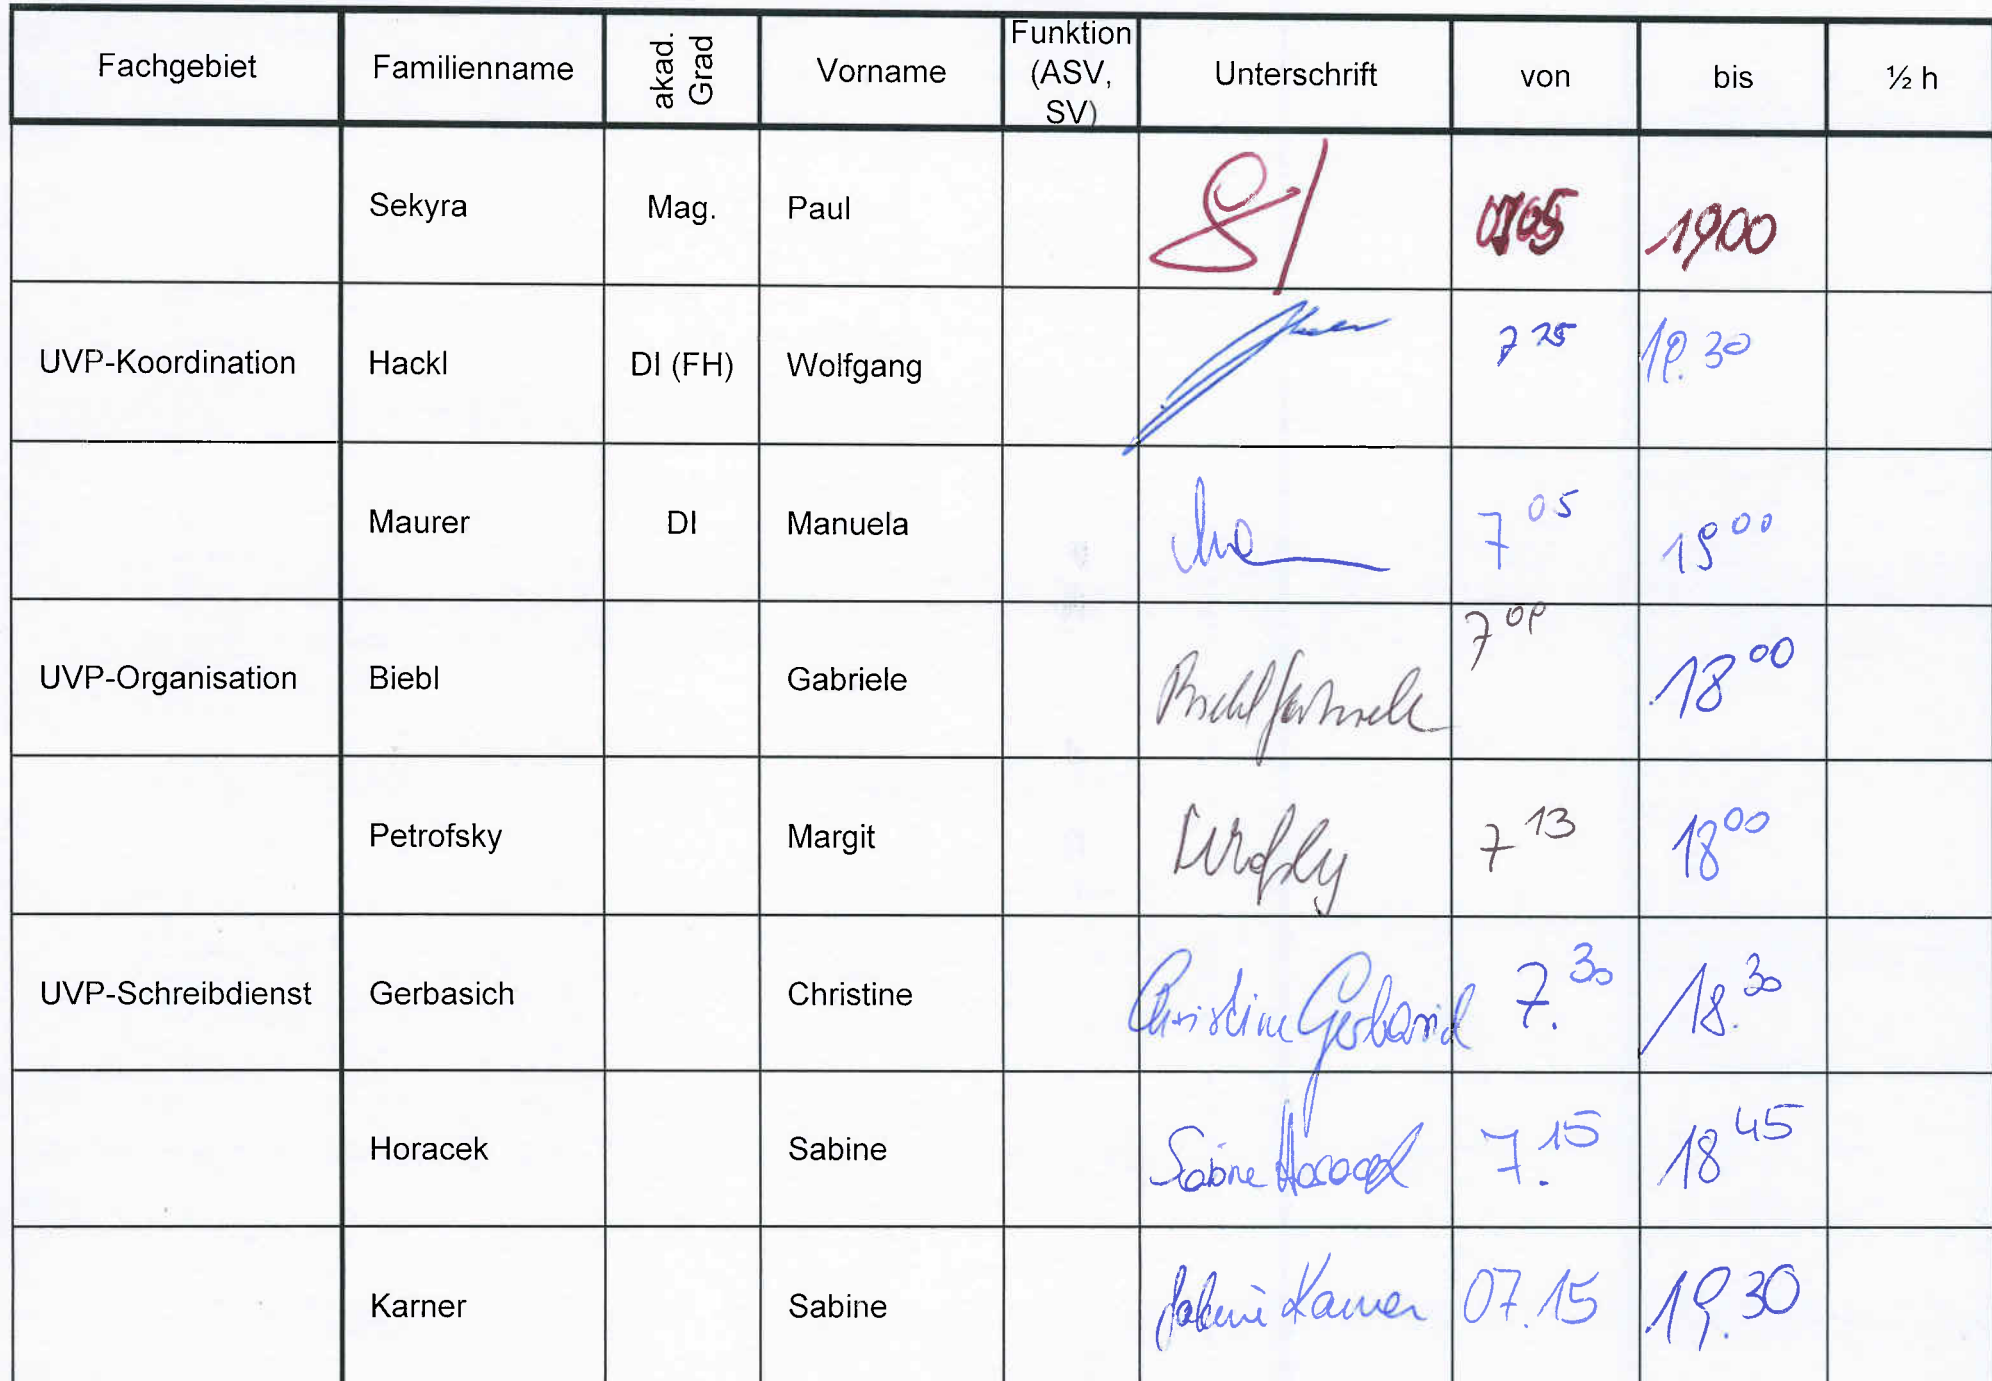 Fachgebiet Familienname akad. Grad Vorname Funktion (ASV, SV) Unterschrift von bis ½ h
Sekyra Mag. Paul 1900
UVP-Koordination Hackl DI (FH) Wolfgang 7 25 19.30
Maurer DI Manuela 7 05 19 00
UVP-Organisation Biebl Gabriele 18 00
Petrofsky Margit 7 13 18 00
UVP-Schreibdienst Gerbasich Christine Christine Gerbasich 7. 30 18. 30
Horacek Sabine Sabine Horacek 7. 15 18 45
Karner Sabine Sabine Karner 07.15 19.30